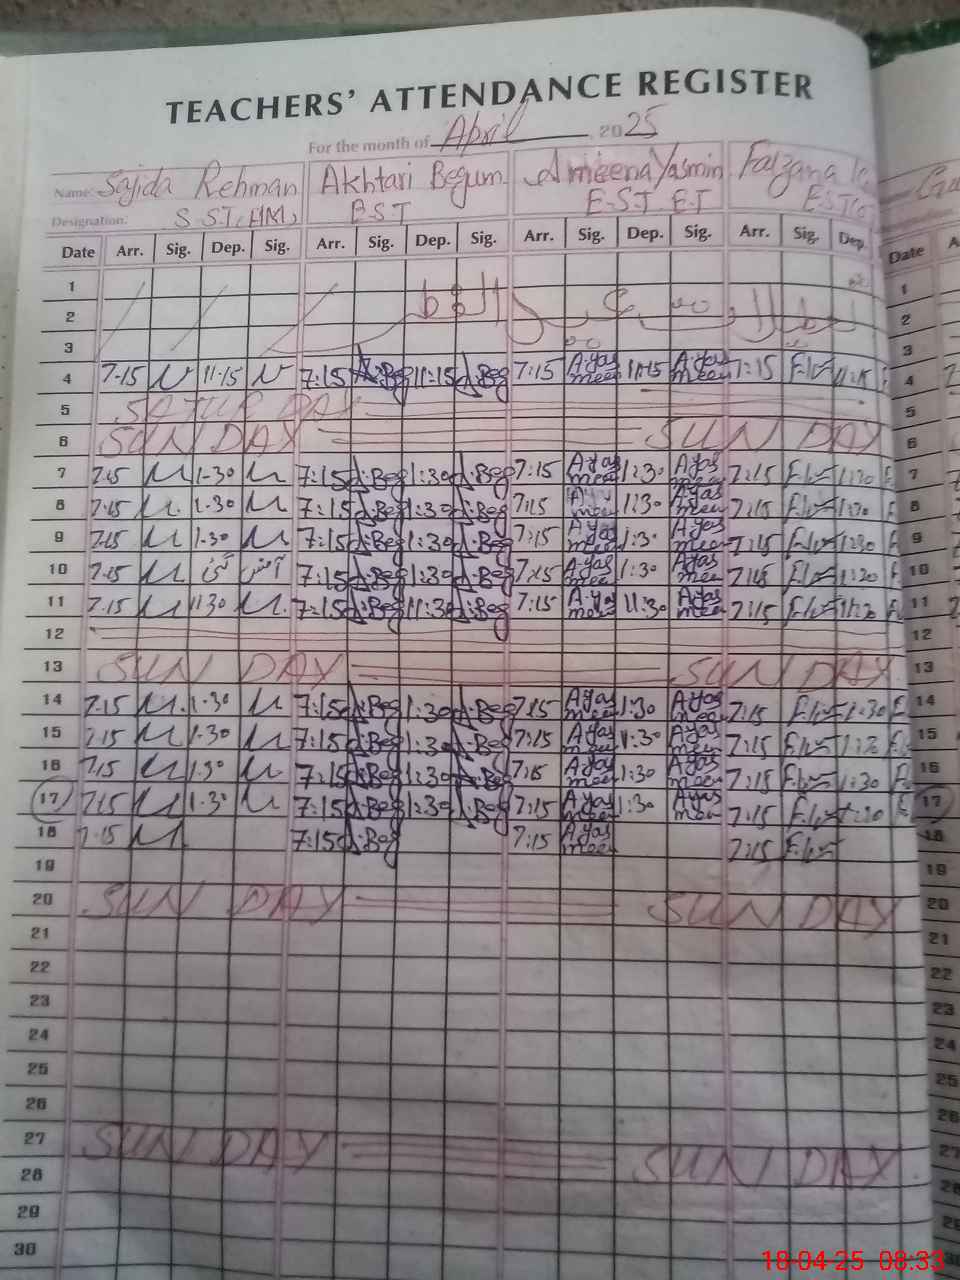 TEACHERS' ATTENDANCE REGISTER
For the month of April 2025
Name: Sajida Rehman Akhtari Begum Ameena Yasmin Farzana
Designation: S.S.T, HM, E.S.T E.S.T E.T E.S.T
Date Arr. Sig. Dep. Sig. Arr. Sig. Dep. Sig. Arr. Sig. Dep. Sig. Arr. Sig. Dep. Date
1 1
2 2
3 3
4 7-15 11-15 7:15 A.Beg 11:15 A.Beg 7:15 A.yasmeen 11:15 A.yasmeen 7:15 11:15 4
5 SATURDAY 5
6 SUNDAY SUNDAY 6
7 7.15 1-30 7:15 A.Beg 1:30 A.Beg 7:15 A.yasmeen 1:30 A.yasmeen 7:15 1:30 7
8 7.15 1-30 7:15 A.Beg 1:30 A.Beg 7:15 A.yasmeen 1:30 A.yasmeen 7:15 1:30 8
9 7.15 1-30 7:15 A.Beg 1:30 A.Beg 7:15 A.yasmeen 1:30 A.yasmeen 7:15 1:30 9
10 7.15 7:15 A.Beg 1:30 A.Beg 7:15 A.yasmeen 1:30 A.yasmeen 7:15 1:30 10
11 7.15 11 30 7:15 A.Beg 11:30 A.Beg 7:15 A.yasmeen 11:30 A.yasmeen 7:15 11:30 11
12 12
13 SUNDAY SUNDAY 13
14 7.15 1-30 7:15 A.Beg 1:30 A.Beg 7:15 A.yasmeen 1:30 A.yasmeen 7:15 1:30 14
15 7.15 1-30 7:15 A.Beg 1:30 A.Beg 7:15 A.yasmeen 1:30 A.yasmeen 7:15 1:30 15
16 7.15 1-30 7:15 A.Beg 1:30 A.Beg 7:15 A.yasmeen 1:30 A.yasmeen 7:15 1:30 16
17 7.15 1-30 7:15 A.Beg 1:30 A.Beg 7:15 A.yasmeen 1:30 A.yasmeen 7:15 1:30 17
18 7-15 7:15 A.Beg 7:15 A.yasmeen 7:15 18
19 19
20 SUNDAY SUNDAY 20
21 21
22 22
23 23
24 24
25 25
26 26
27 SUNDAY SUNDAY 27
28 28
29 29
30
18-04-25 08:33